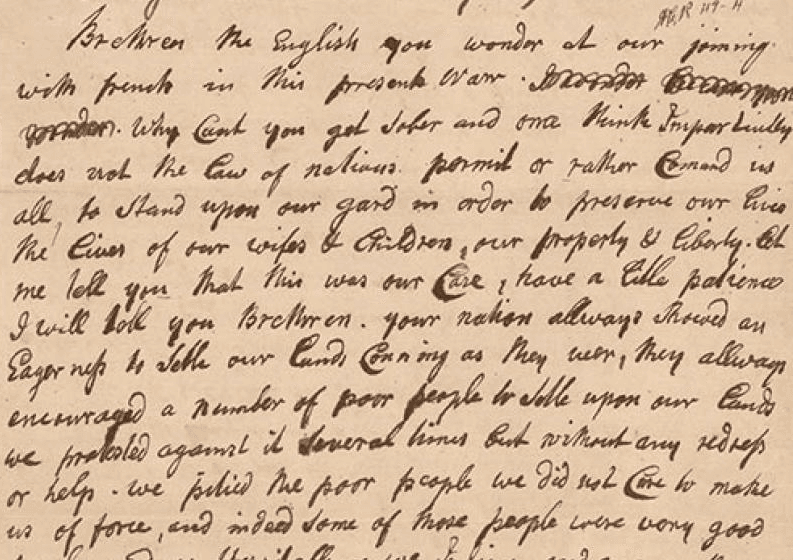 Brethren the English you wonder at our joining
with french in this present Warr.
Why Cant you get sober and once think Impartiully
does not the law of nations permit or rather Comand us
all, to Stand upon our gard in order to preserve our lives
the lives of our wifes & Children, our property & liberty. let
me tell you that this was our Case, have a little patience
I will tell you Brethren. your nation allways showed an
Eagerness to settle our Lands Conning as they wer, they allways
encouraged a number of poor people to settle upon our Lands
we protested against it several times but without any redress
or help. we pitied the poor people we did not Care to make
us of force, and indeed some of those people were very good